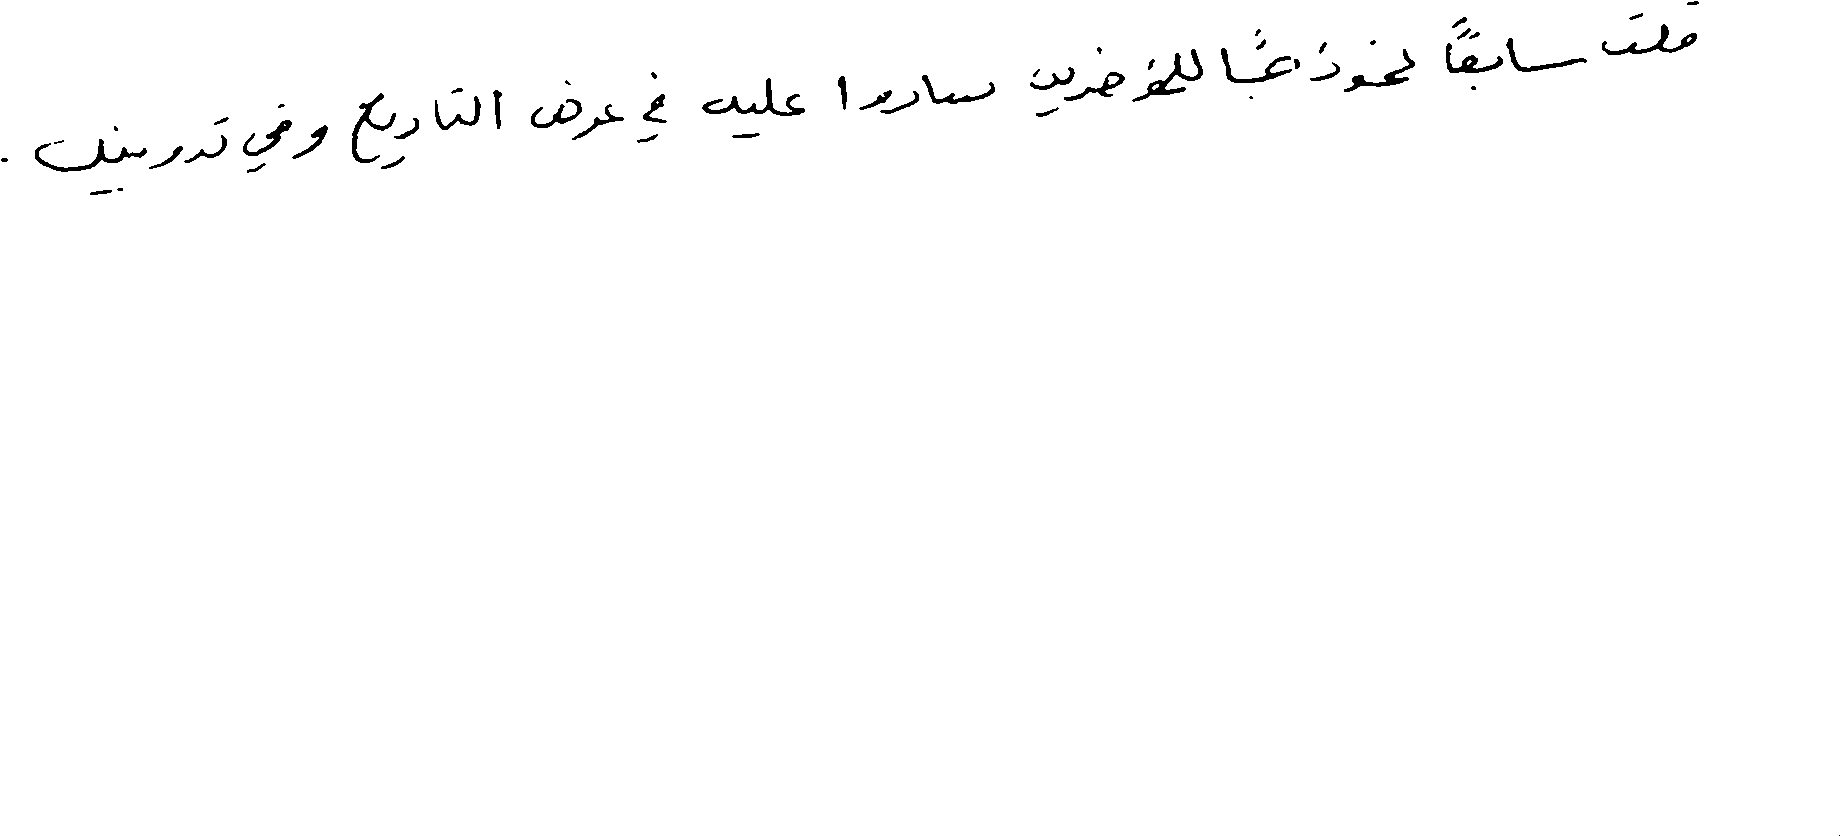 قلت سابقًا نموذجًا للمؤخرين ساروا عليه في عرض التاريخ وفي تدوينه .